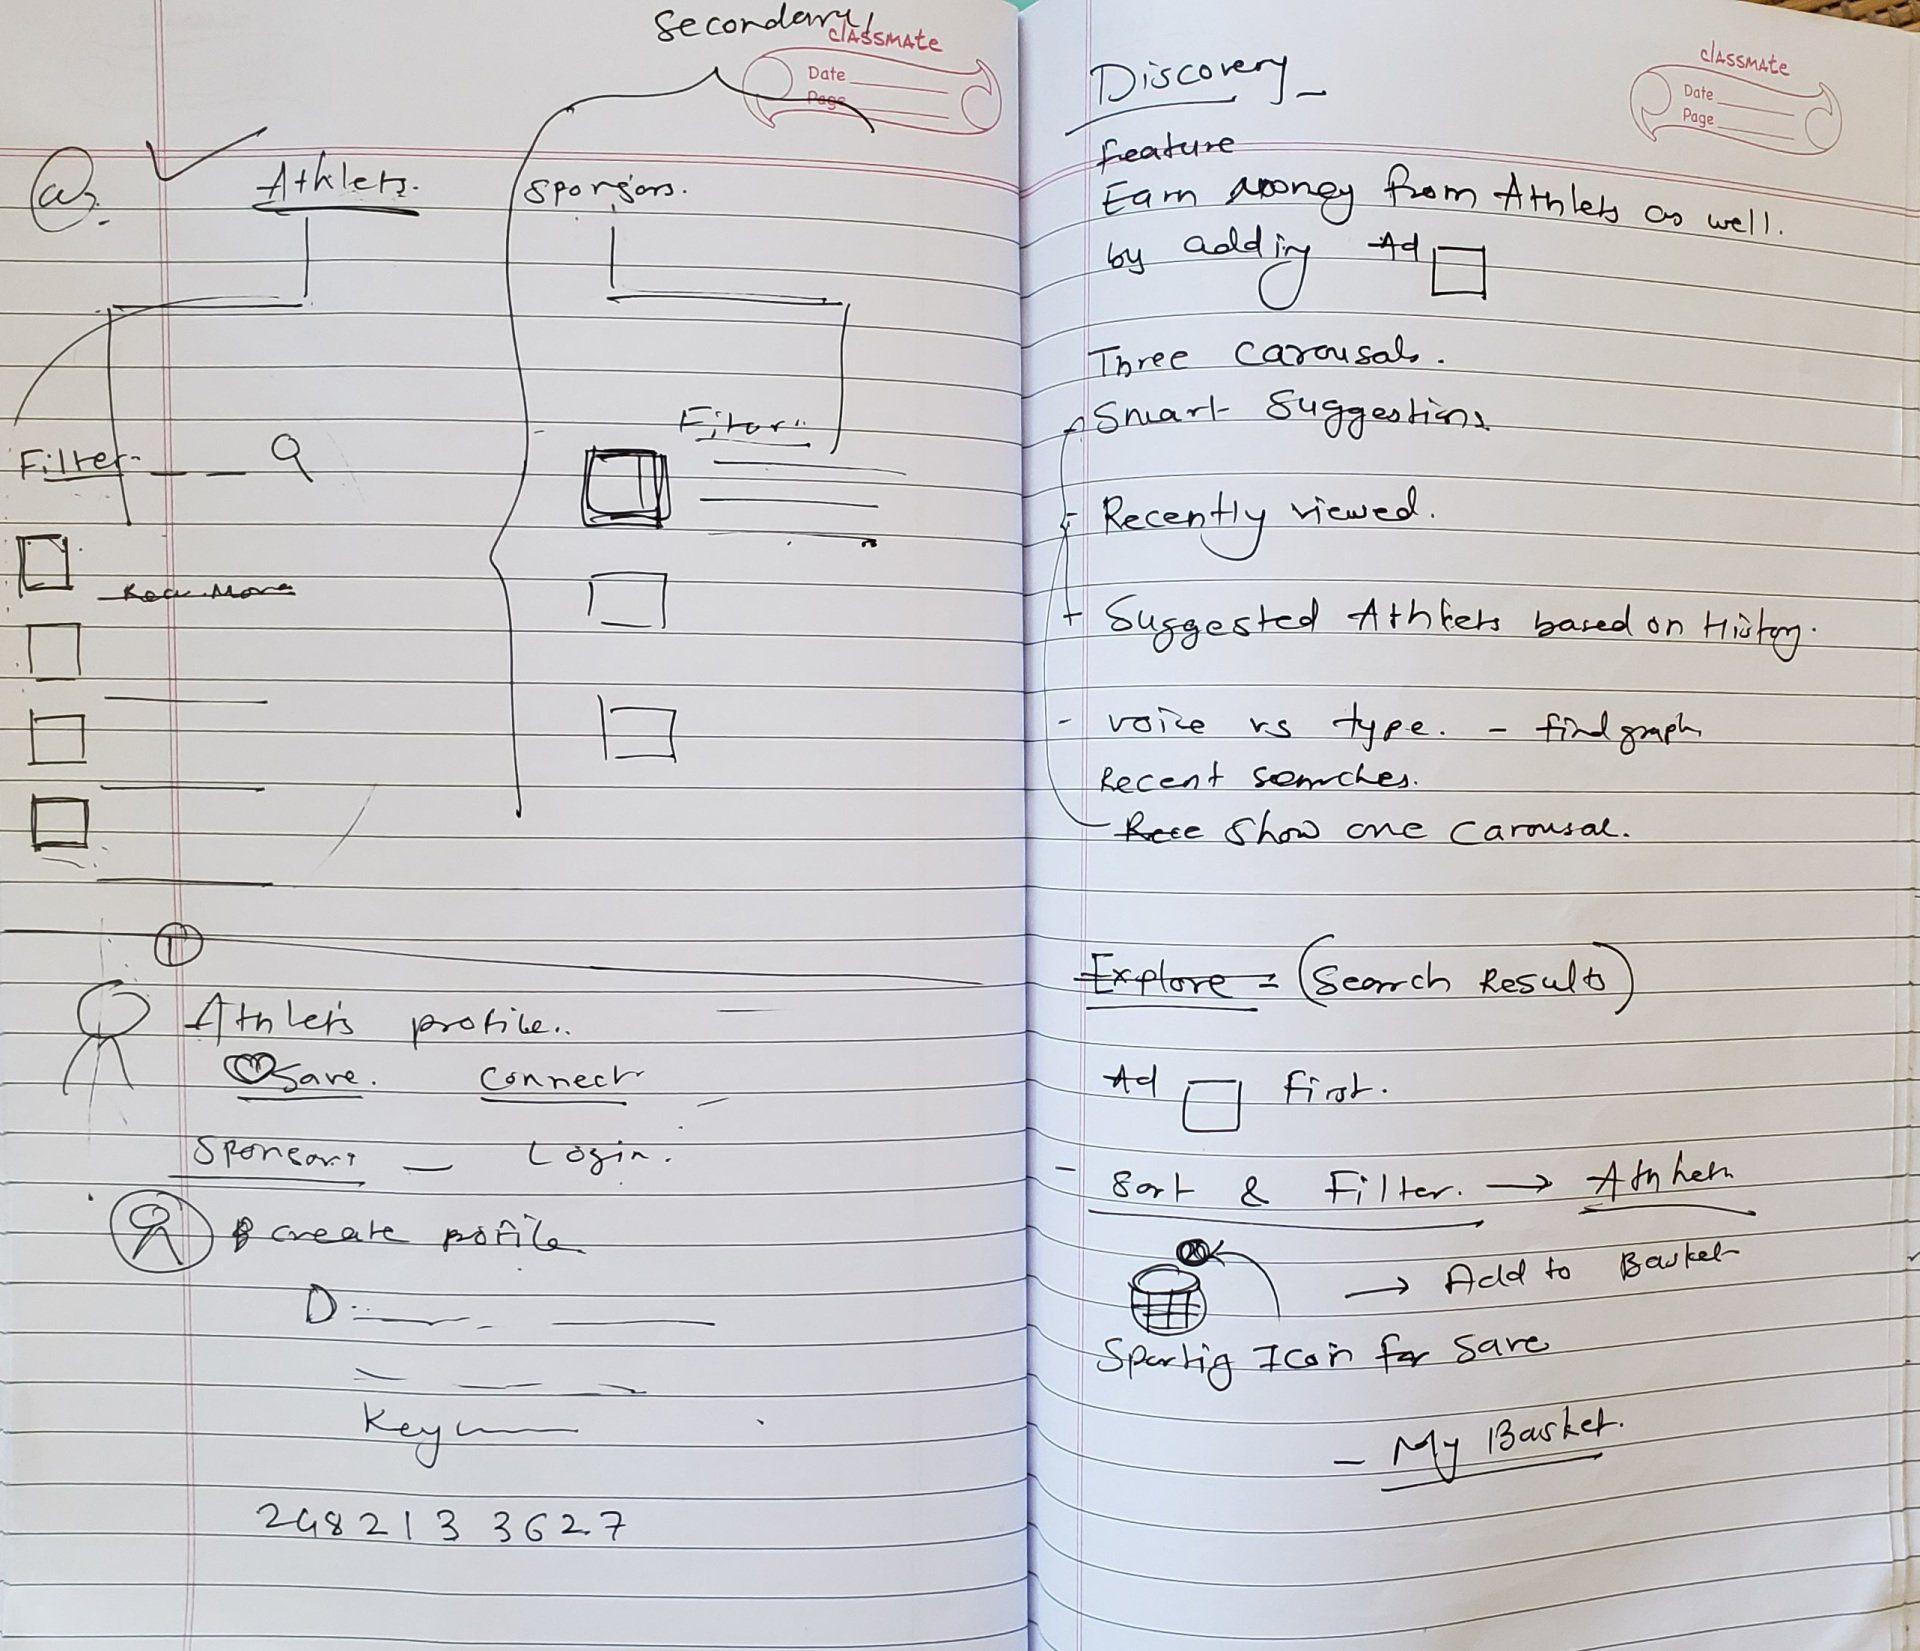 Secondary
classmate
Date
Page
Athlets.
Sponsors.
Filter
Filter
Read More
Athlets profile..
Save. Connect
Sponsors - Login.
create pofile
D
Key
248213 3627
classmate
Date
Page
Discovery -
feature
Earn money from Athlets as well.
by adding Ad
Three Carousals.
- Smart Suggestions
- Recently viewed.
+ Suggested Athlets based on History.
- voice vs type. - find graph
Recent searches.
Rece Show one Carousal.
Explore = (Search Results)
Ad First.
- Sort & Filter. → Athlets
→ Add to Basket
Sportig Icon for Save
- My Basket.